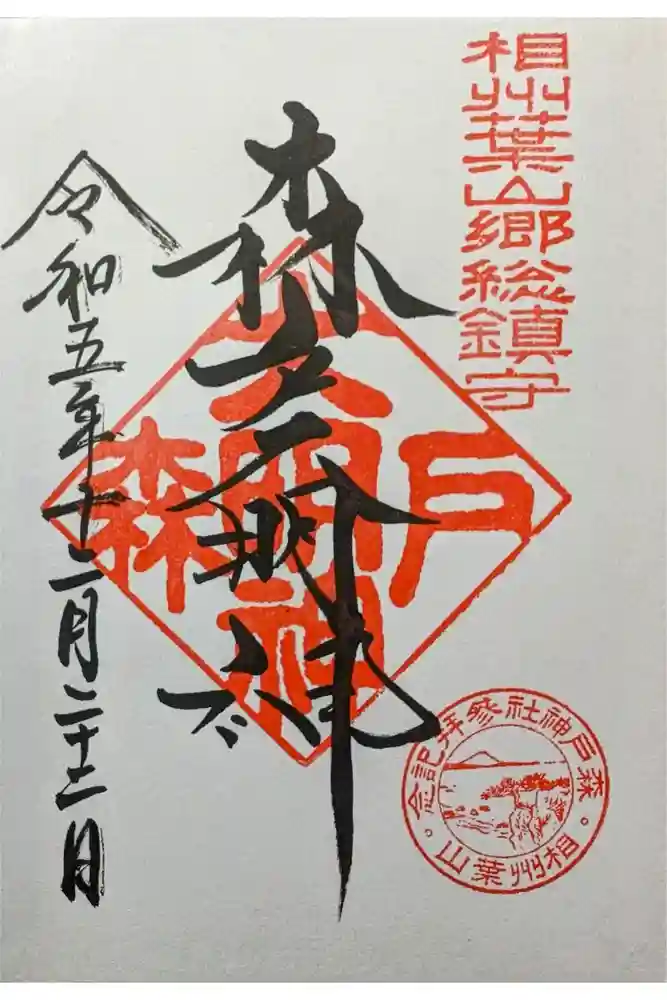 相州葉山郷総鎮守
森戸大明神
森戸大明神
令和五年十二月二十二日
森戸神社参拝記念
相州葉山